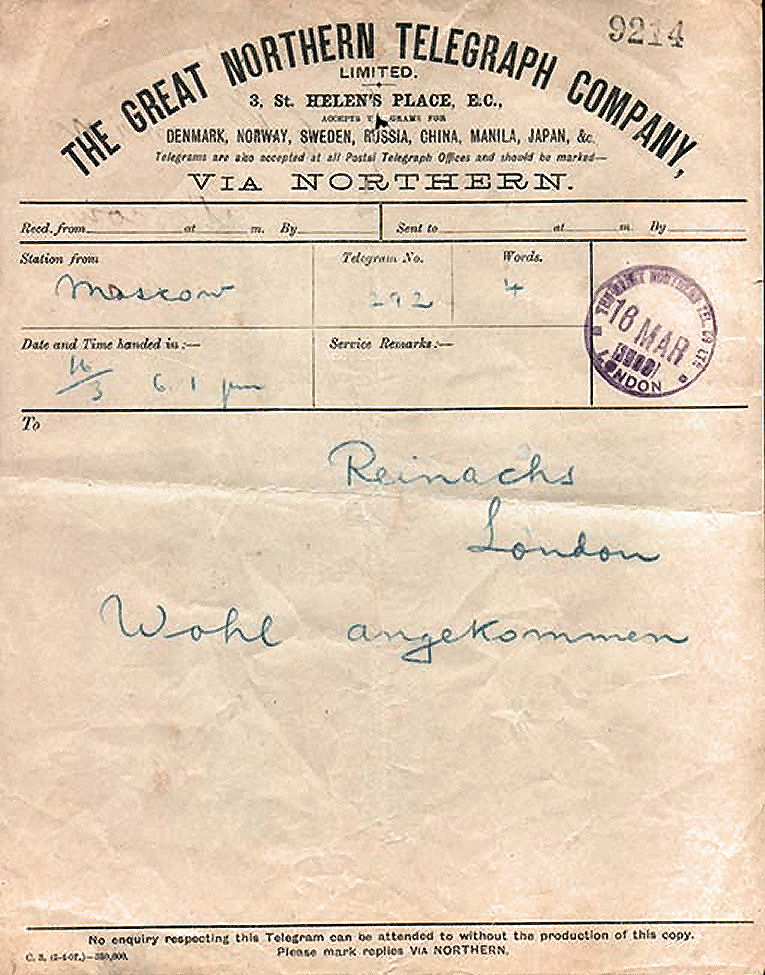 9214
THE GREAT NORTHERN TELEGRAPH COMPANY,
LIMITED.
3, St. HELEN'S PLACE, E.C.,
ACCEPTS TELEGRAMS FOR
DENMARK, NORWAY, SWEDEN, RUSSIA, CHINA, MANILA, JAPAN, &c.
Telegrams are also accepted at all Postal Telegraph Offices and should be marked—
VIA NORTHERN.
Recd. from at m. By Sent to at m. By
Station from Telegram No. Words.
Moscow 292 4
16 MAR
LONDON
Date and Time handed in:— Service Remarks:—
16/3 6.1 pm
To
Reinachs
London
Wohl angekommen
No enquiry respecting this Telegram can be attended to without the production of this copy.
Please mark replies VIA NORTHERN.